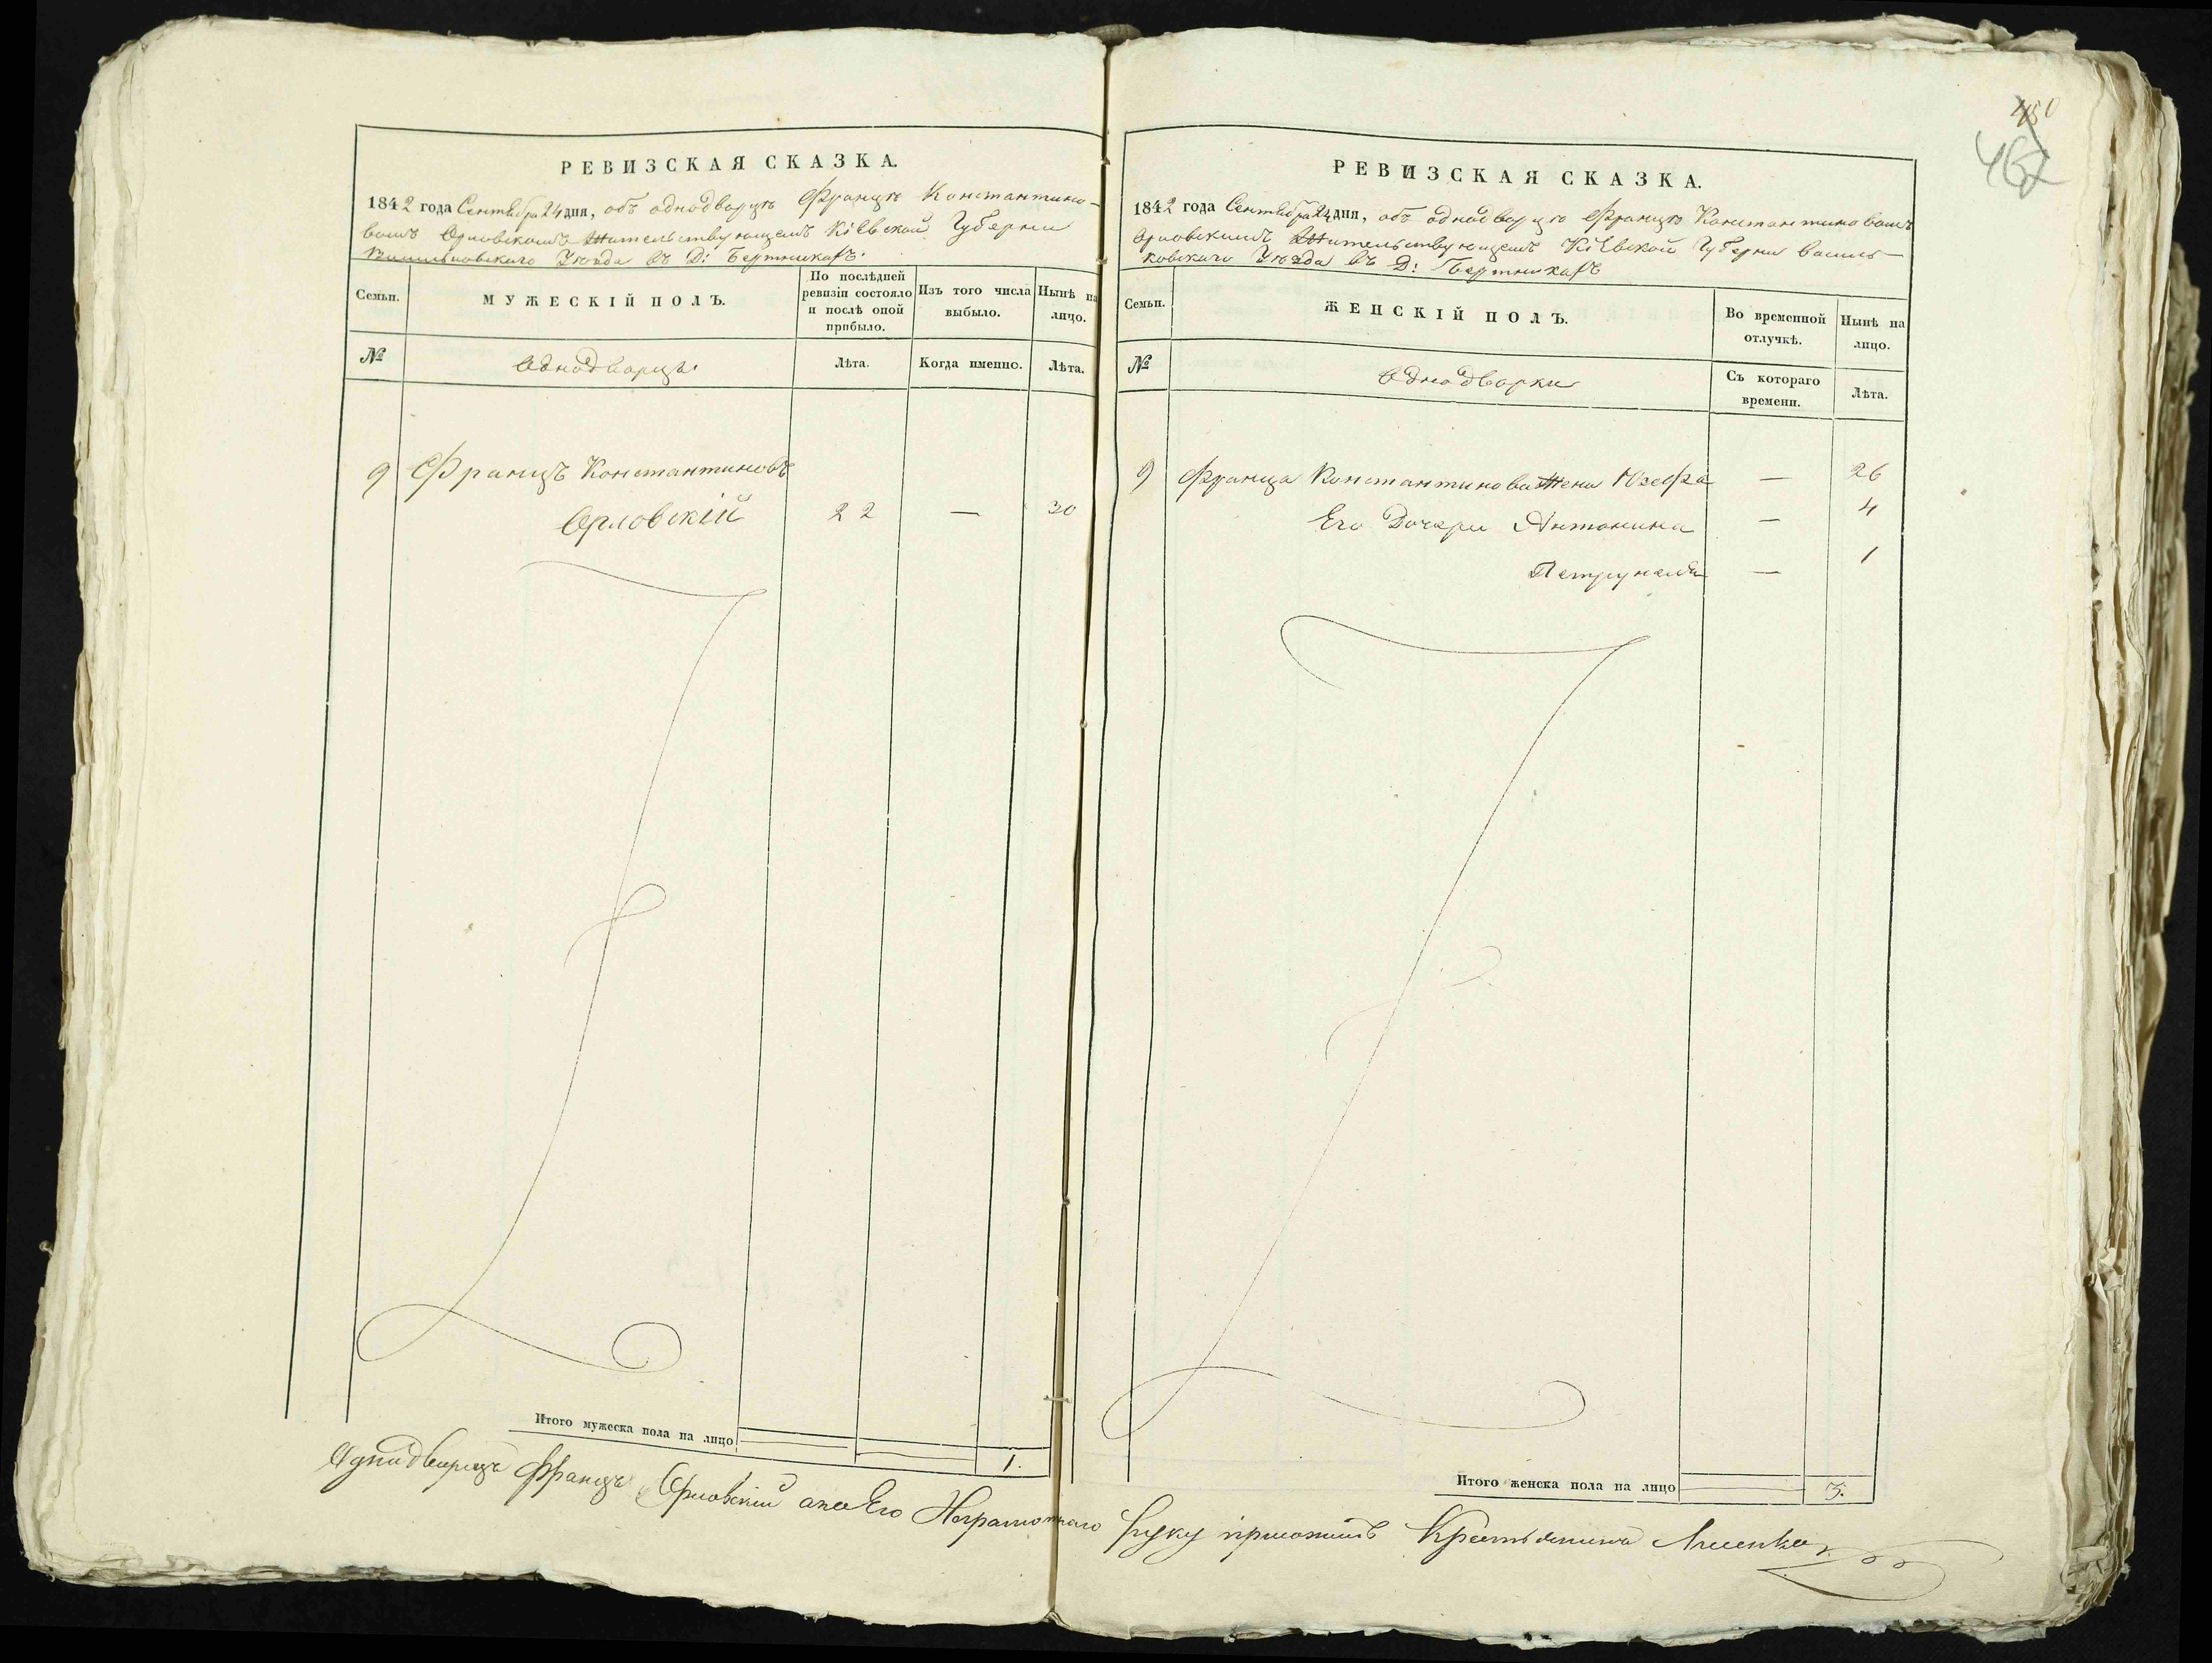 450
467
РЕВИЗСКАЯ СКАЗКА.
1842 года Сентября 24 дня, объ однодворцѣ Францѣ Константино-
вомъ Орловскомъ Жительствующемъ Кіевской Губерніи
Васильковскаго Уѣзда въ Д: Бертникахъ.
Семьи.
МУЖЕСКІЙ ПОЛЪ.
По послѣдней ревизіи состояло и послѣ оной прибыло.
Изъ того числа выбыло.
Нынѣ на лицо.
№
Однодворцы.
Лѣта.
Когда именно.
Лѣта.
9 Францъ Константиновъ
Орловскій 22 — 30
Итого мужеска пола на лицо 1.
РЕВИЗСКАЯ СКАЗКА.
1842 года Сентября 24 дня, объ однодворцѣ Францѣ Константиновомъ
Орловскимъ Жительствующемъ Кіевской Губерніи Василь-
ковскаго Уѣзда въ Д: Бертникахъ
Семьи.
ЖЕНСКІЙ ПОЛЪ.
Во временной отлучкѣ.
Нынѣ на лицо.
№
Однодворки
Съ котораго времени.
Лѣта.
9 Франца Константинова Жена Юзефа — 26
Его Дочери Антонина — 4
Петрунеля — 1
Итого женска пола на лицо 3.
Однодворецъ Францъ Орловскій а за Его Неграмотнаго руку приложилъ Крестьянинъ